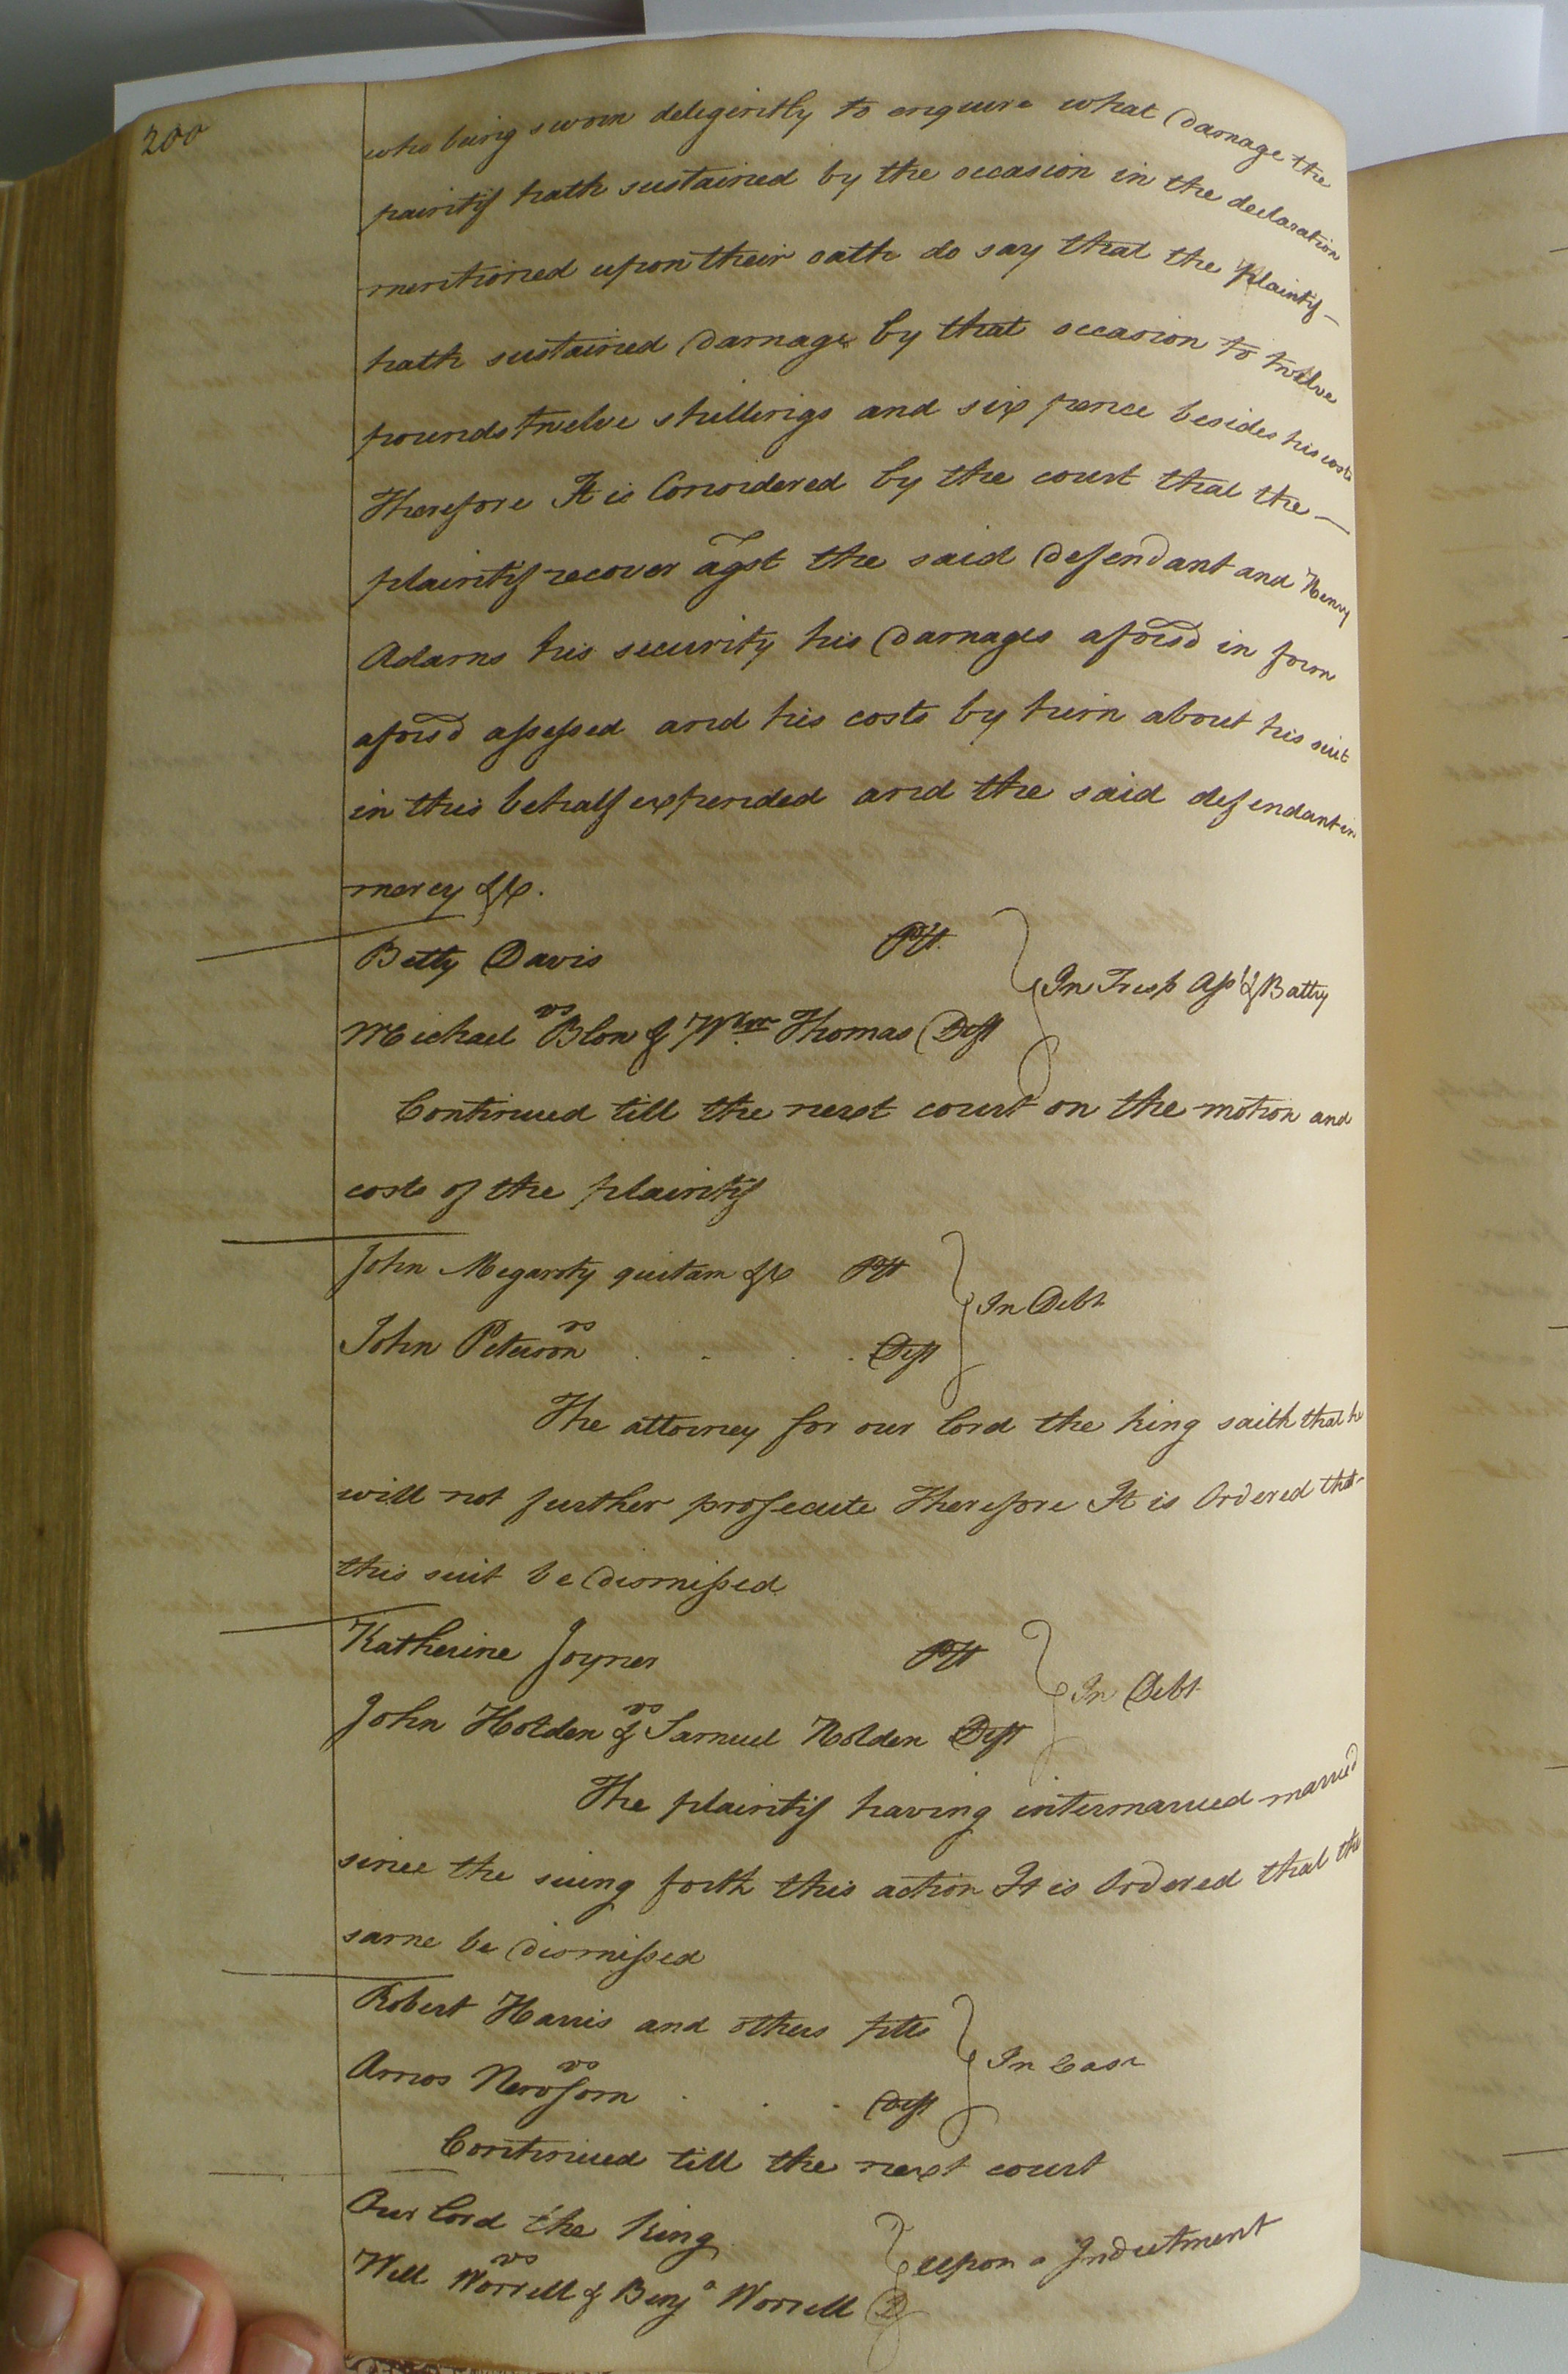 200
who being sworn deligently to enquire what Damage the
paintif hath sustained by the occasion in the declaration
mentioned upon their oath do say that the Plaintif
hath sustained Damage by that occasion to twelve
pounds twelve shillings and six pence besides his costs
Therefore It is Considered by the court that the
plaintif recover agst the said Defendant and Henry
Adams his security his Damages aforsd in form
aforsd assessed and his costs by him about his suit
in this behalf expended and the said defendant in
mercy &c.
Betty Davis Plt.
vs
In Tresp Asst & Batty
Michael Blow & Wm Thomas Deft
Continued till the next court on the motion and
costs of the plaintif
John Megarity quitam &c Plt
vs
In Debt
John Peterson . . . . Deft
The attorney for our lord the king saith that he
will not further prosecute Therefore It is Ordered that
this suit be Dismissed
Katherine Joyner Plt
vs
In Debt
John Holden & Samuel Holden Deft
The plaintif having intermarried married
since the suing forth this action It is Ordered that the
same be Dismissed
Robert Harris and others plts
vs
In Case
Amos Newsom . . . Deft
Continued till the next court
Our lord the king
vs
upon a Indictment
Will Worrell & Benja Worrell D